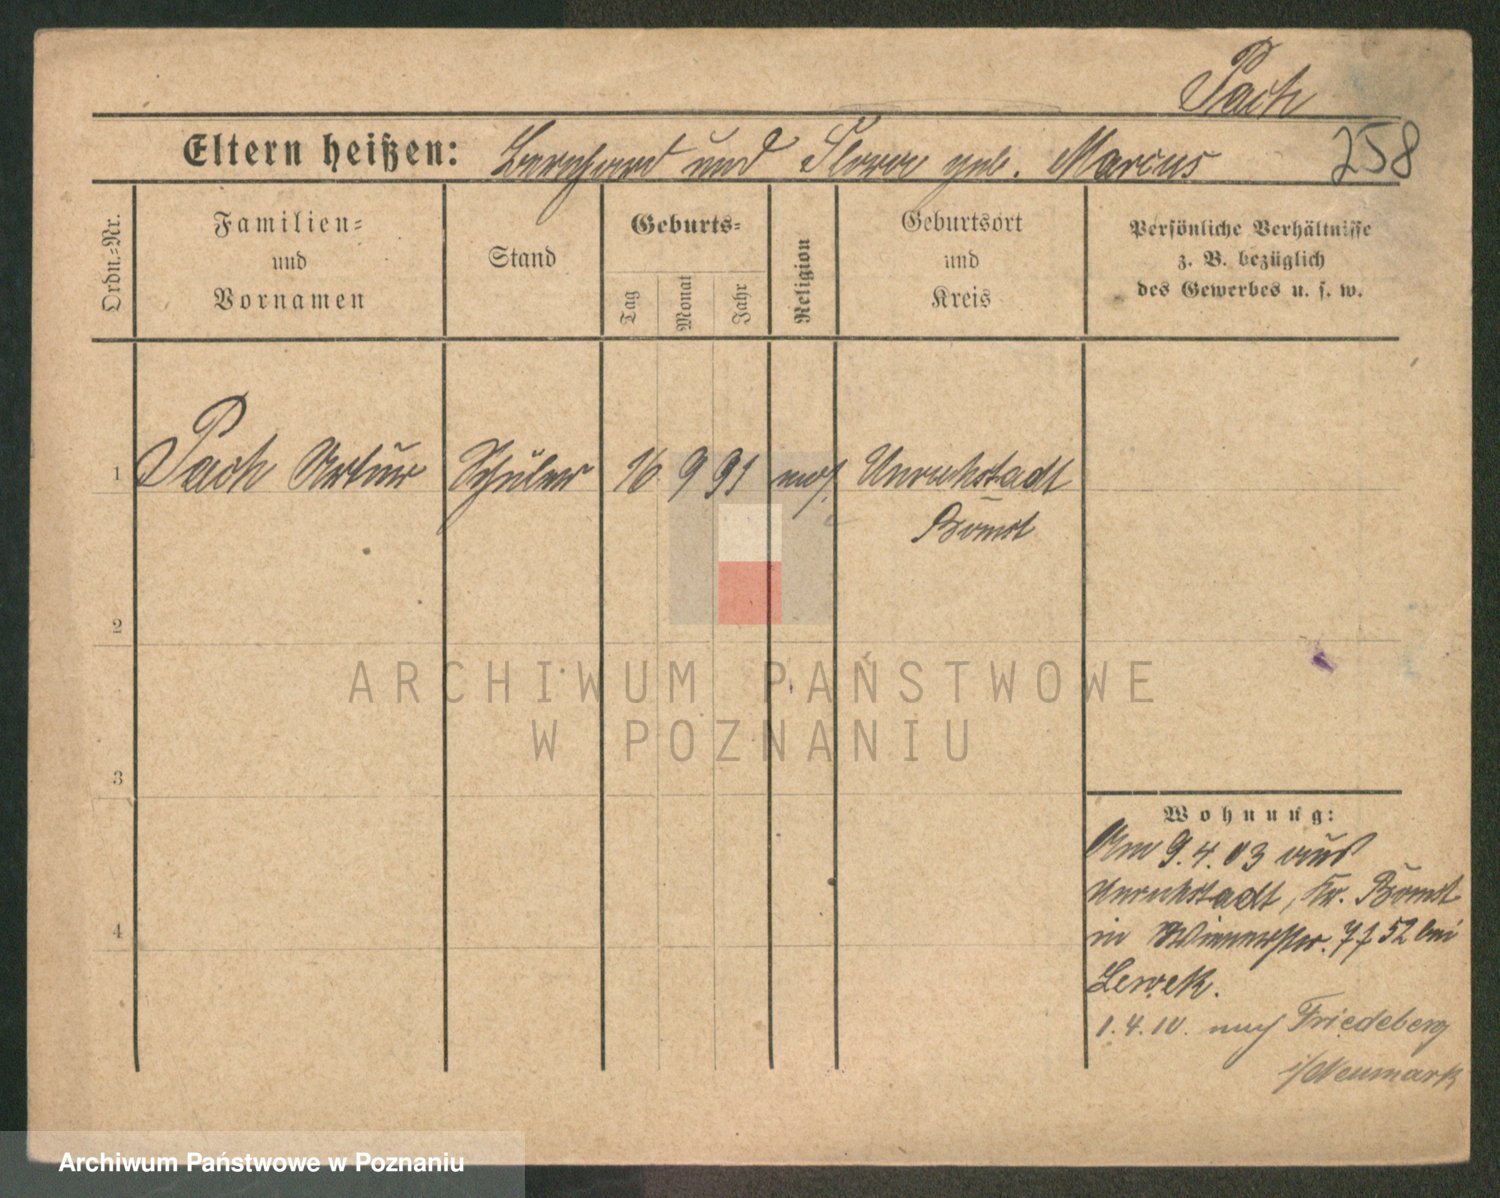 Pach
258
Eltern heißen: Bernhard und Flora geb. Marcus
Ordn.-Nr.
Familien-
und
Vornamen
Stand
Geburts-
Tag
Monat
Jahr
Religion
Geburtsort
und
Kreis
Persönliche Verhältnisse
z. B. bezüglich
des Gewerbes u. s. w.
1 Pach Artur Schüler 16 9 91 mos. Unruhstadt
Bomst
2
3
4
ARCHIWUM PAŃSTWOWE
W POZNANIU
Wohnung:
Am 9.4.03 aus
Unruhstadt, Kr. Bomst
in 52 bei
Lewek.
1.4.10. nach Friedeberg
i/Neumark
Archiwum Państwowe w Poznaniu